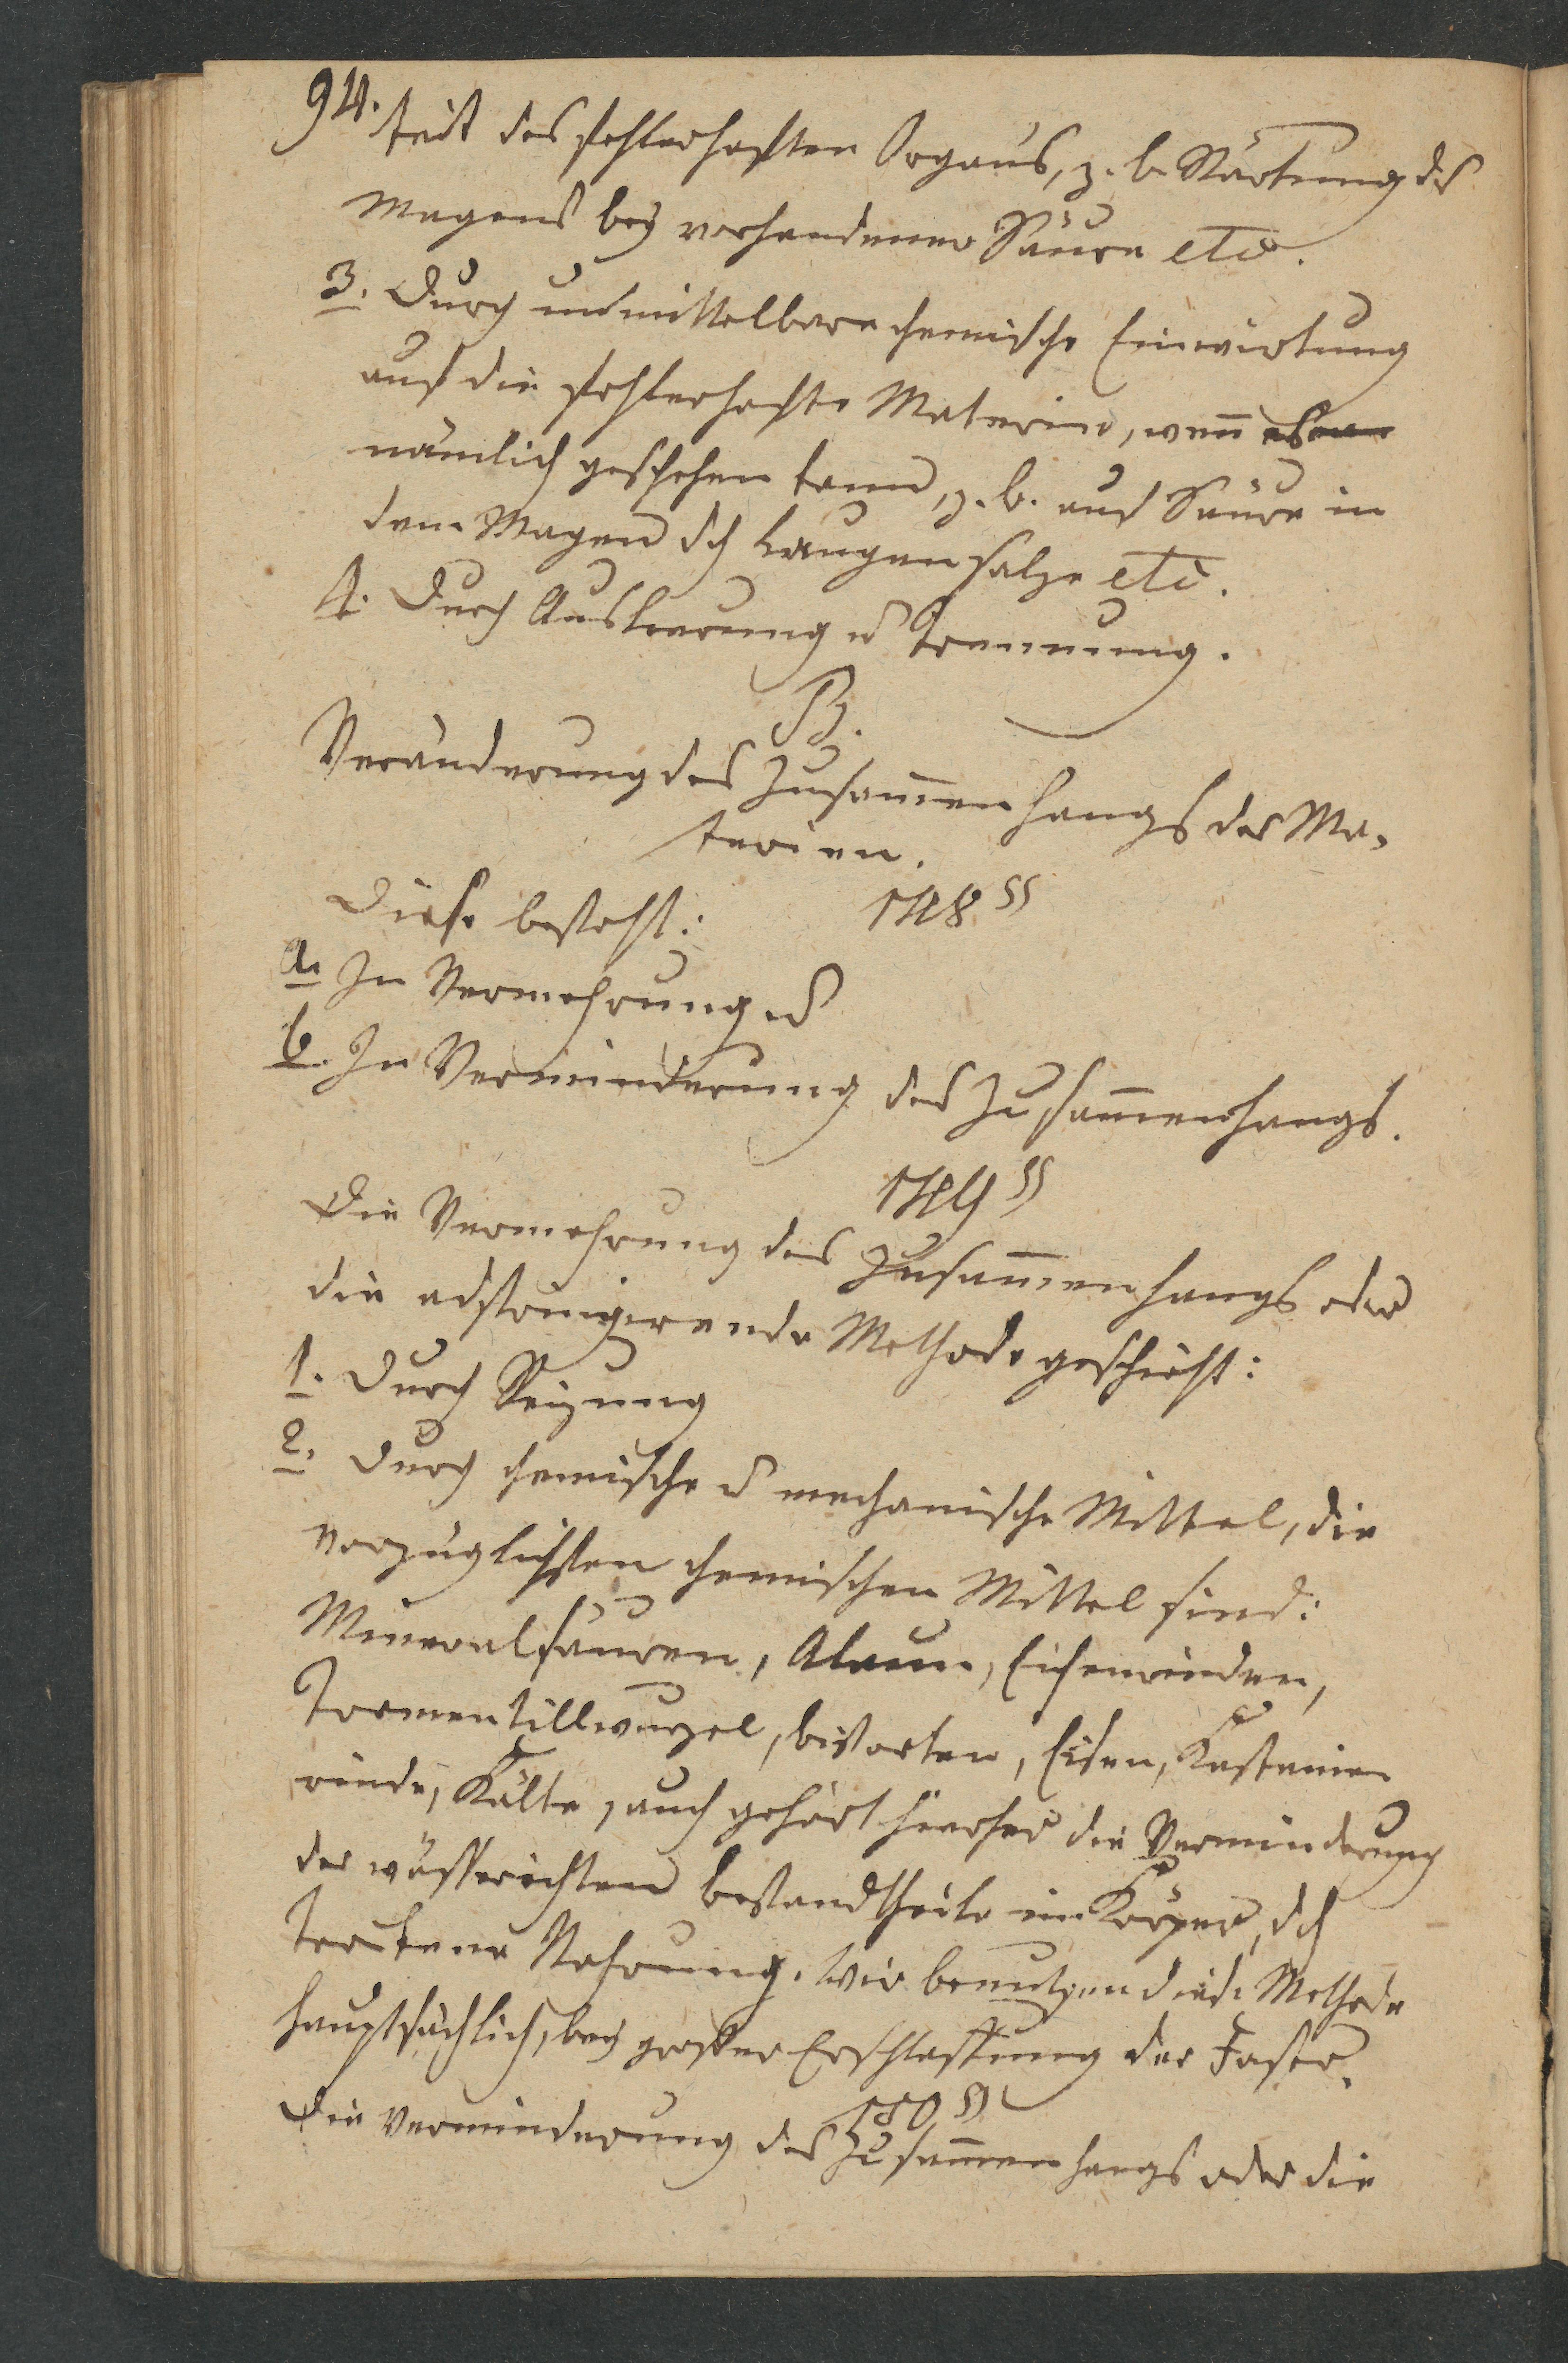 94.
keit des fehlerhaften Organs, z. b. Stärkung des
Magens bey vorhandener Säure etc.
3. Durch unmittelbare chemische Einwirkung
auf die fehlerhafte Materien, wenn
nämlich geschehen kann, z. b. auf Säure in
dem Magen dch Laugensalze etc.
4. Durch Ausleerung u Trennung.
B.
Veränderung des Zusam̅enhangs der Ma-
terien.
148 §§
Diese besteht:
a. In Vermehrung u
b. In Verminderung des Zusam̅enhangs.
149 §§
Die Vermehrung des Zusam̅enhangs oder
die adstringirende Methode geschieht:
1. Durch Reizung
2. Durch chemische u mechanische Mittel, die
vorzüglichsten chemischen Mittel sind:
Mineralsäuren, Alaun, Eichenrinden,
Tormentillwurzel, bistorten, Eisen, Kastanien
rinde, Kälte, auch gehört hierher die Verminderung
der wässerichten bestandtheile im Körper, dch
trokene Nahrung. Wir benutzen diese Methode
hauptsächlich, bey grosser Erschlaffung der Faser.
150 §§
Die Verminderung des Zusam̅enhangs oder die